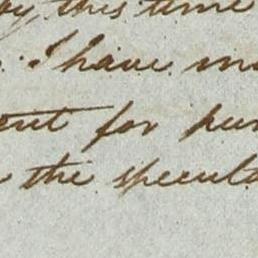 by this time
I have
for
the specula